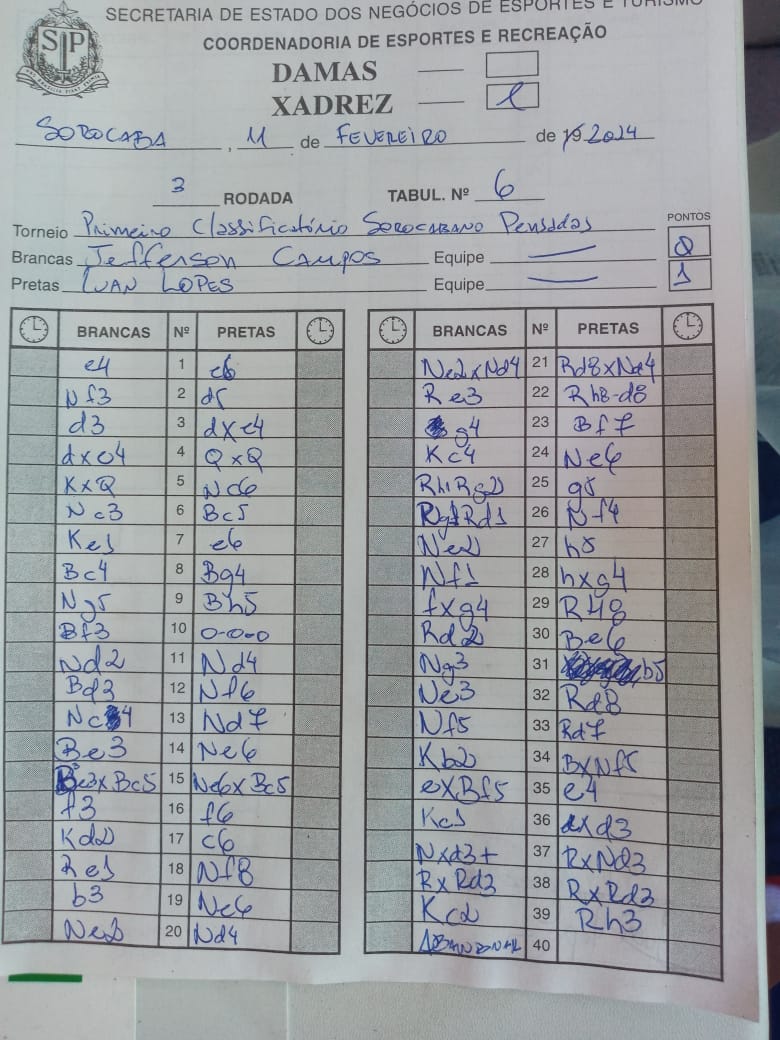 SECRETARIA DE ESTADO DOS NEGÓCIOS DE ESPORTES E TURISMO
COORDENADORIA DE ESPORTES E RECREAÇÃO
SP
DAMAS
XADREZ
SOROCABA, 11 de FEVEREIRO de 19 2024
3 RODADA TABUL. Nº 6
Torneio Primeiro Classificatório SOROCABANO Pensadas PONTOS
Brancas Jefferson CAMPOS Equipe 0
Pretas IVAN LOPES Equipe 1
BRANCAS Nº PRETAS
e4 1 e6
Nf3 2 d5
d3 3 dxe4
dxe4 4 QxQ
KxQ 5 Nc6
Nc3 6 Bc5
Ke1 7 e6
Bc4 8 Bg4
Ng5 9 Bh5
Bf3 10 0-0-0
Nd2 11 Nd4
Bd3 12 Nf6
Nc4 13 Nd7
Be3 14 Ne6
Be3xBc5 15 Ne6xBc5
f3 16 f6
Kd2 17 c6
Re1 18 Nf8
b3 19 Ne6
Ne2 20 Nd4
BRANCAS Nº PRETAS
Ne2xNd4 21 Rd8xNd4
Re3 22 Rh8-d8
g4 23 Bf7
Kc4 24 Ne6
25 g5
Rd1 26 Nf4
Ne2 27 h5
Nf1 28 hxg4
fxg4 29 R48
Rd2 30 Be6
Ng3 31 b5
Ne3 32 Rd8
Nf5 33 Rd7
Kb2 34 BxNf5
exBf5 35 e4
Kc1 36 exd3
Nxd3+ 37 RxNd3
RxRd3 38 RxRd3
Kc2 39 Rh3
ABANDONA 40